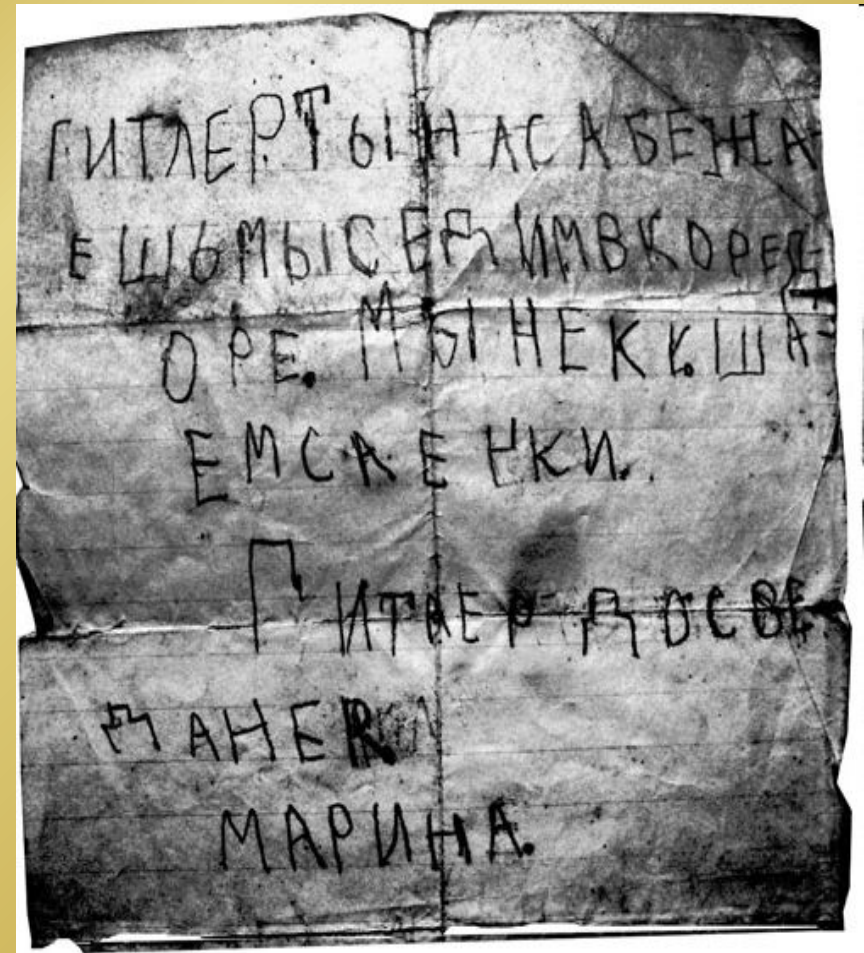 ГИТЛЕР ТЫ НАС АБЕЖА-
ЕШЬ МЫ СЕДИМ В КОРЕД-
ОРЕ. МЫ НЕ К К.ША-
ЕМ САЕНКИ.
ГИТЛЕР ДОСВЕ
ДАНЕ
МАРИНА.